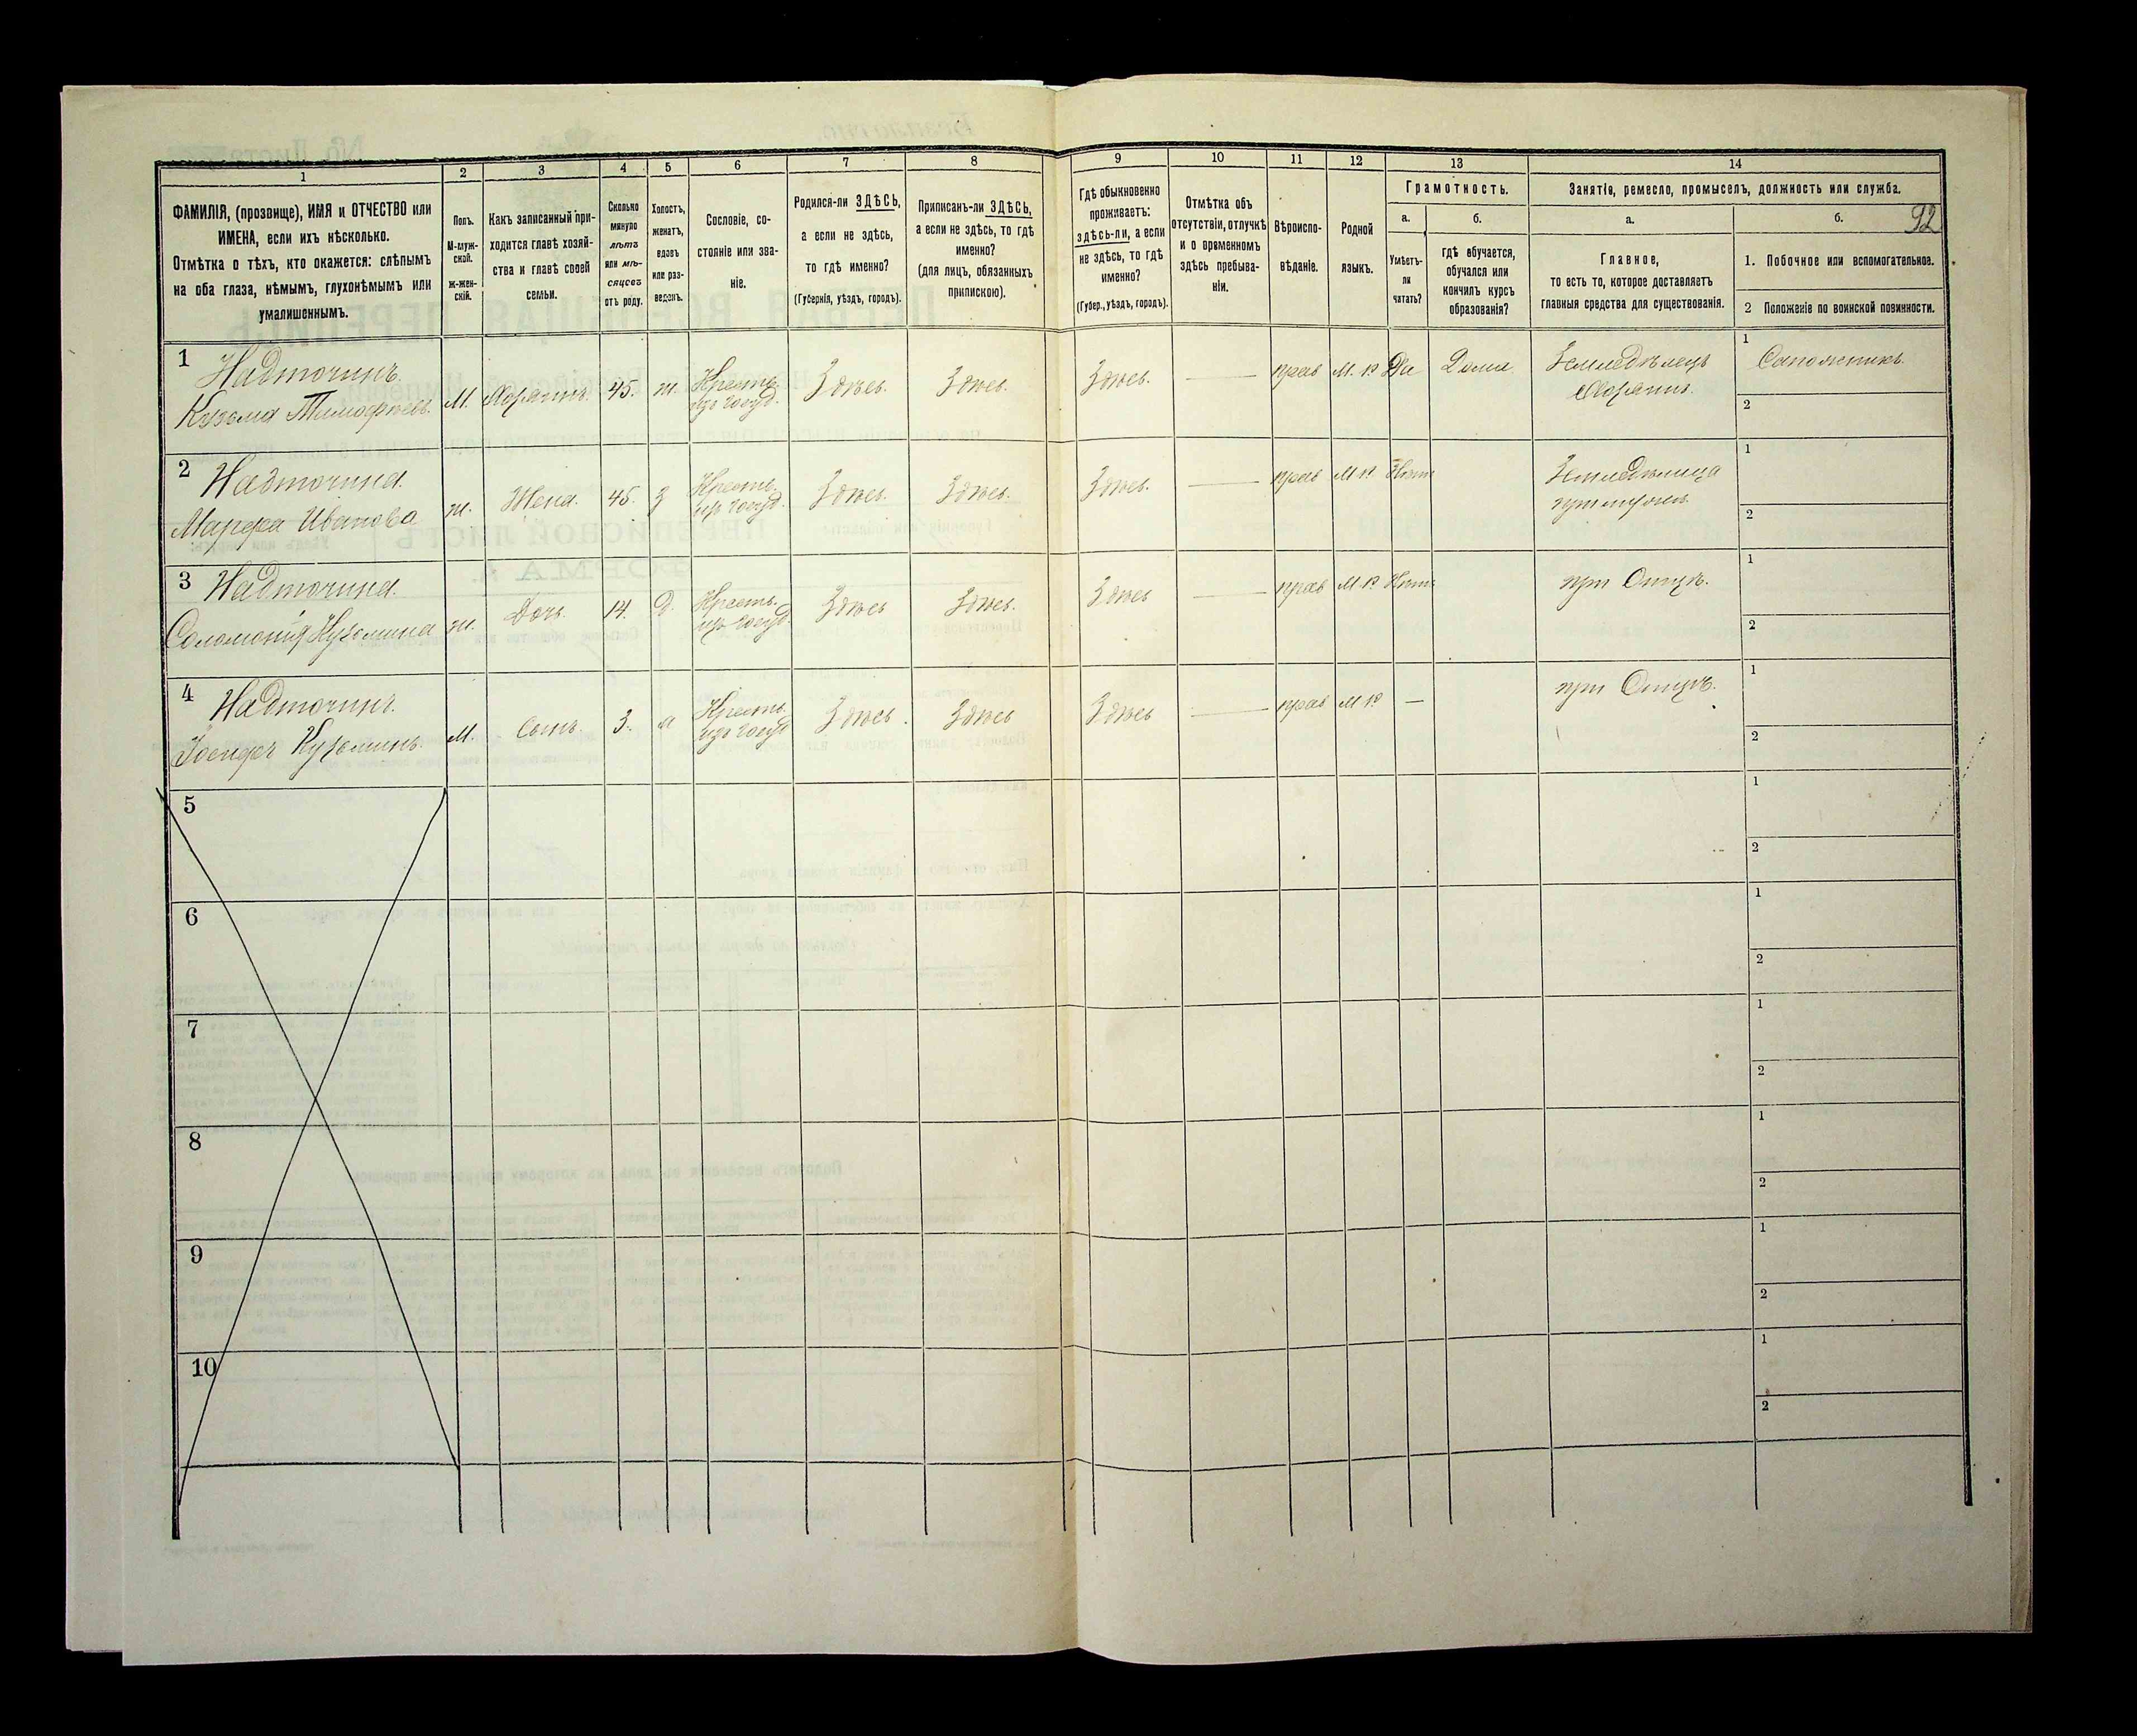 92
1
2
3
4
5
6
7
8
9
10
11
12
13
14
ФАМИЛІЯ, (прозвище), ИМЯ и ОТЧЕСТВО или
ИМЕНА, если ихъ нѣсколько.
Отмѣтка о тѣхъ, кто окажется: слѣпымъ
на оба глаза, нѣмымъ, глухонѣмымъ или
умалишеннымъ.
Полъ.
М-муж-
ской.
ж-жен-
скій.
Какъ записанный при-
ходится главѣ хозяй-
ства и главѣ своей
семьи.
Сколько
минуло
лѣтъ
или мѣ-
сяцевъ
отъ роду.
Холостъ,
женатъ,
вдовъ
или раз-
веденъ.
Сословіе, со-
стояніе или зва-
ніе.
Родился-ли ЗДѢСЬ,
а если не здѣсь,
то гдѣ именно?
(Губернія, уѣздъ, городъ).
Приписанъ-ли ЗДѢСЬ,
а если не здѣсь, то гдѣ
именно?
(для лицъ, обязанныхъ
припискою).
Гдѣ обыкновенно
проживаетъ:
здѣсь-ли, а если
не здѣсь, то гдѣ
именно?
(Губер., уѣздъ, городъ).
Отмѣтка объ
отсутствіи, отлучкѣ
и о временномъ
здѣсь пребыва-
ніи.
Вѣроиспо-
вѣданіе.
Родной
языкъ.
Грамотность.
а.
Умѣетъ-
ли
читать?
б.
гдѣ обучается,
обучался или
кончилъ курсъ
образованія?
Занятіе, ремесло, промыселъ, должность или служба.
а.
Главное,
то есть то, которое доставляетъ
главныя средства для существованія.
б.
1. Побочное или вспомогательное.
2 Положеніе по воинской повинности.
1
Надточинъ.
Кузьма Тимофѣевъ.
М. Хозяинъ. 45. ж. Крестъ.
изъ госуд.
Здѣсь. Здѣсь. Здѣсь. — прав М. Р Да Дома Земледѣлецъ
Хозяинъ.
1 Сапожникъ.
2
2
Надточина
Марфа Иванова
ж. Жена. 45. з Крестъ.
изъ госуд.
Здѣсь. Здѣсь. Здѣсь. — прав М Р Нѣтъ Земледѣлица
1
2
3
Надточина.
Соломонія Кузьмина
ж. Дочь. 14. д. Крестъ.
изъ госуд.
Здѣсь Здѣсь. Здѣсь — прав М Р Нѣтъ при Отцѣ.
1
2
4
Надточинъ.
Іосифъ Кузьминъ.
М. Сынъ. 3. х Крестъ.
изъ госуд
Здѣсь. Здѣсь Здѣсь — прав М Р — при Отцѣ.
1
2
5
1
2
6
1
2
7
1
2
8
1
2
9
1
2
10
1
2